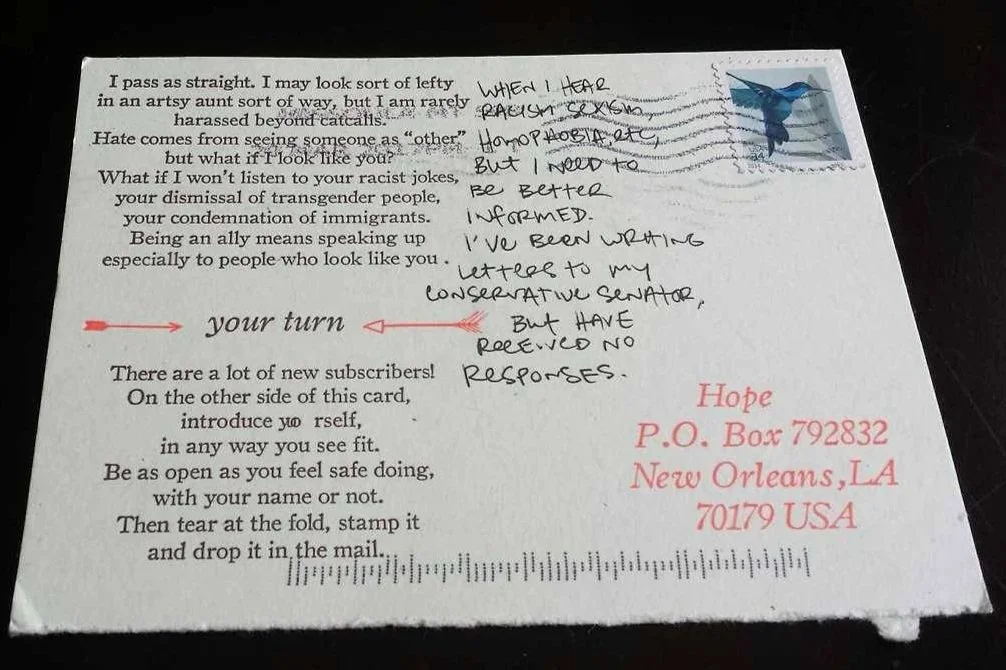 I pass as straight. I may look sort of lefty
in an artsy aunt sort of way, but I am rarely
harassed beyond catcalls.
Hate comes from seeing someone as “other”
but what if I look like you?
What if I won’t listen to your racist jokes,
your dismissal of transgender people,
your condemnation of immigrants.
Being an ally means speaking up
especially to people who look like you .
your turn
There are a lot of new subscribers!
On the other side of this card,
introduce yo rself,
in any way you see fit.
Be as open as you feel safe doing,
with your name or not.
Then tear at the fold, stamp it
and drop it in the mail.
WHEN I HEAR
RACISM SEXISM,
HOMOPHOBIA, ETC,
BUT I NEED TO
BE BETTER
INFORMED.
I'VE BEEN WRITING
LETTERS TO MY
CONSERVATIVE SENATOR,
BUT HAVE
RECEIVED NO
RESPONSES.
USA
34
Hope
P.O. Box 792832
New Orleans, LA
70179 USA